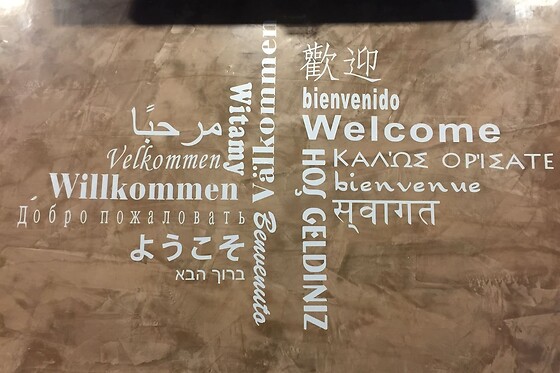 مرحبًا
Velkommen
Willkommen
Добро пожаловать
ようこそ
ברוך הבא
Witamy
Välkommen
Benvenuto
歡迎
bienvenido
Welcome
HOŞ GELDINIZ
ΚΑΛΏΣ ΟΡΊΣΑΤΕ
bienvenue
स्वागत